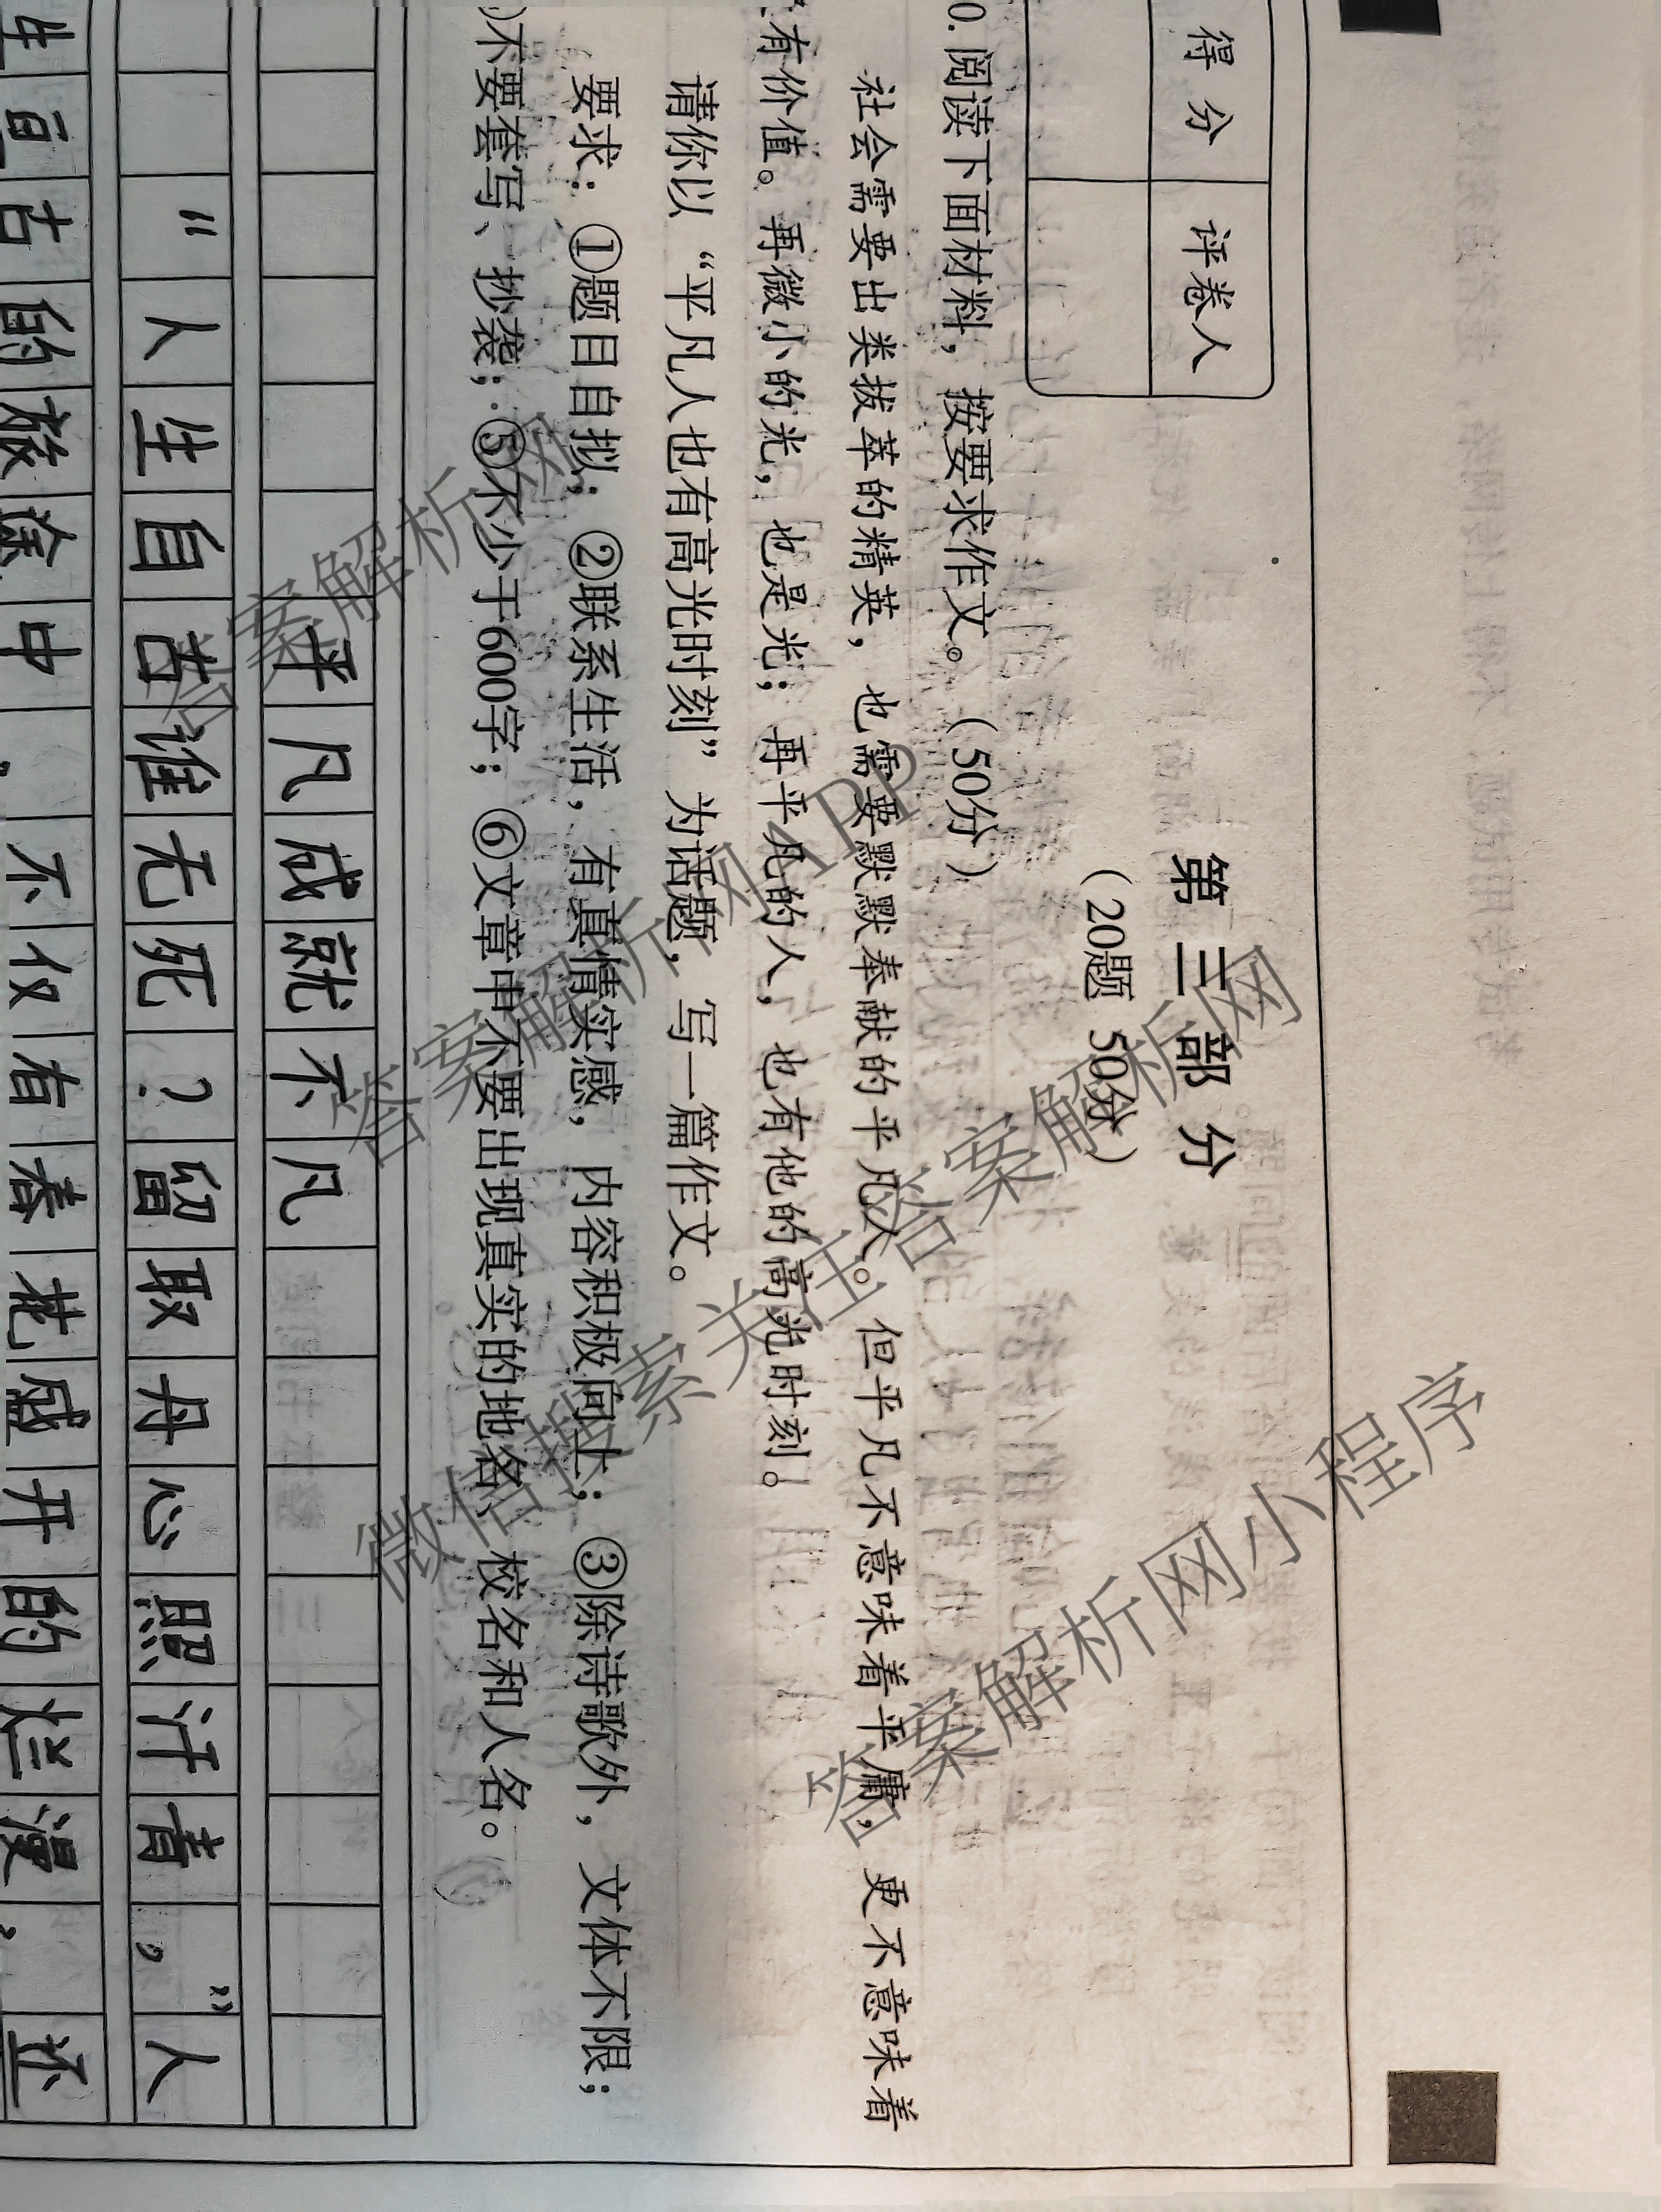 得分 评卷人
第三部分
（20题 50分）
0. 阅读下面材料，按要求作文。（50分）
社会需要出类拔萃的精英，也需要默默奉献的平凡人。但平凡不意味着平庸，更不意味着
有价值。再微小的光，也是光；再平凡的人，也有他的高光时刻。
请你以“平凡人也有高光时刻”为话题，写一篇作文。
要求：①题目自拟；②联系生活，有真情实感，内容积极向上；③除诗歌外，文体不限；
不要套写、抄袭；⑤不少于600字；⑥文章中不要出现真实的地名、校名和人名。
平凡成就不凡
“人生自古谁无死？留取丹心照汗青，”人
生亘古的旅途中，不仅有春花盛开的烂漫，还
答案解析网
答案解析网APP
微信搜索关注答案解析网
答案解析网小程序